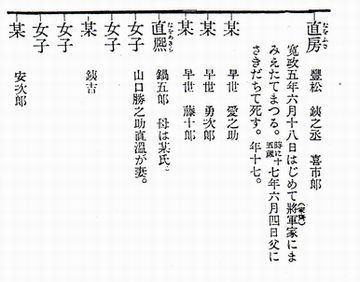 直房 なをふさ 豐松 銕之丞 喜市郎
寛政五年六月十八日はじめて將軍家(家齊)にま
みえたてまつる。時に十五歳七年六月四日父に
さきだちて死す。年十七。
某 早世 愛之助
某 早世 勇次郎
某 早世 藤十郎
直熈 なをあきら 鍋五郎 母は某氏。
女子 山口勝之助直温が妻。
某 銕吉
女子
女子
某 安次郎